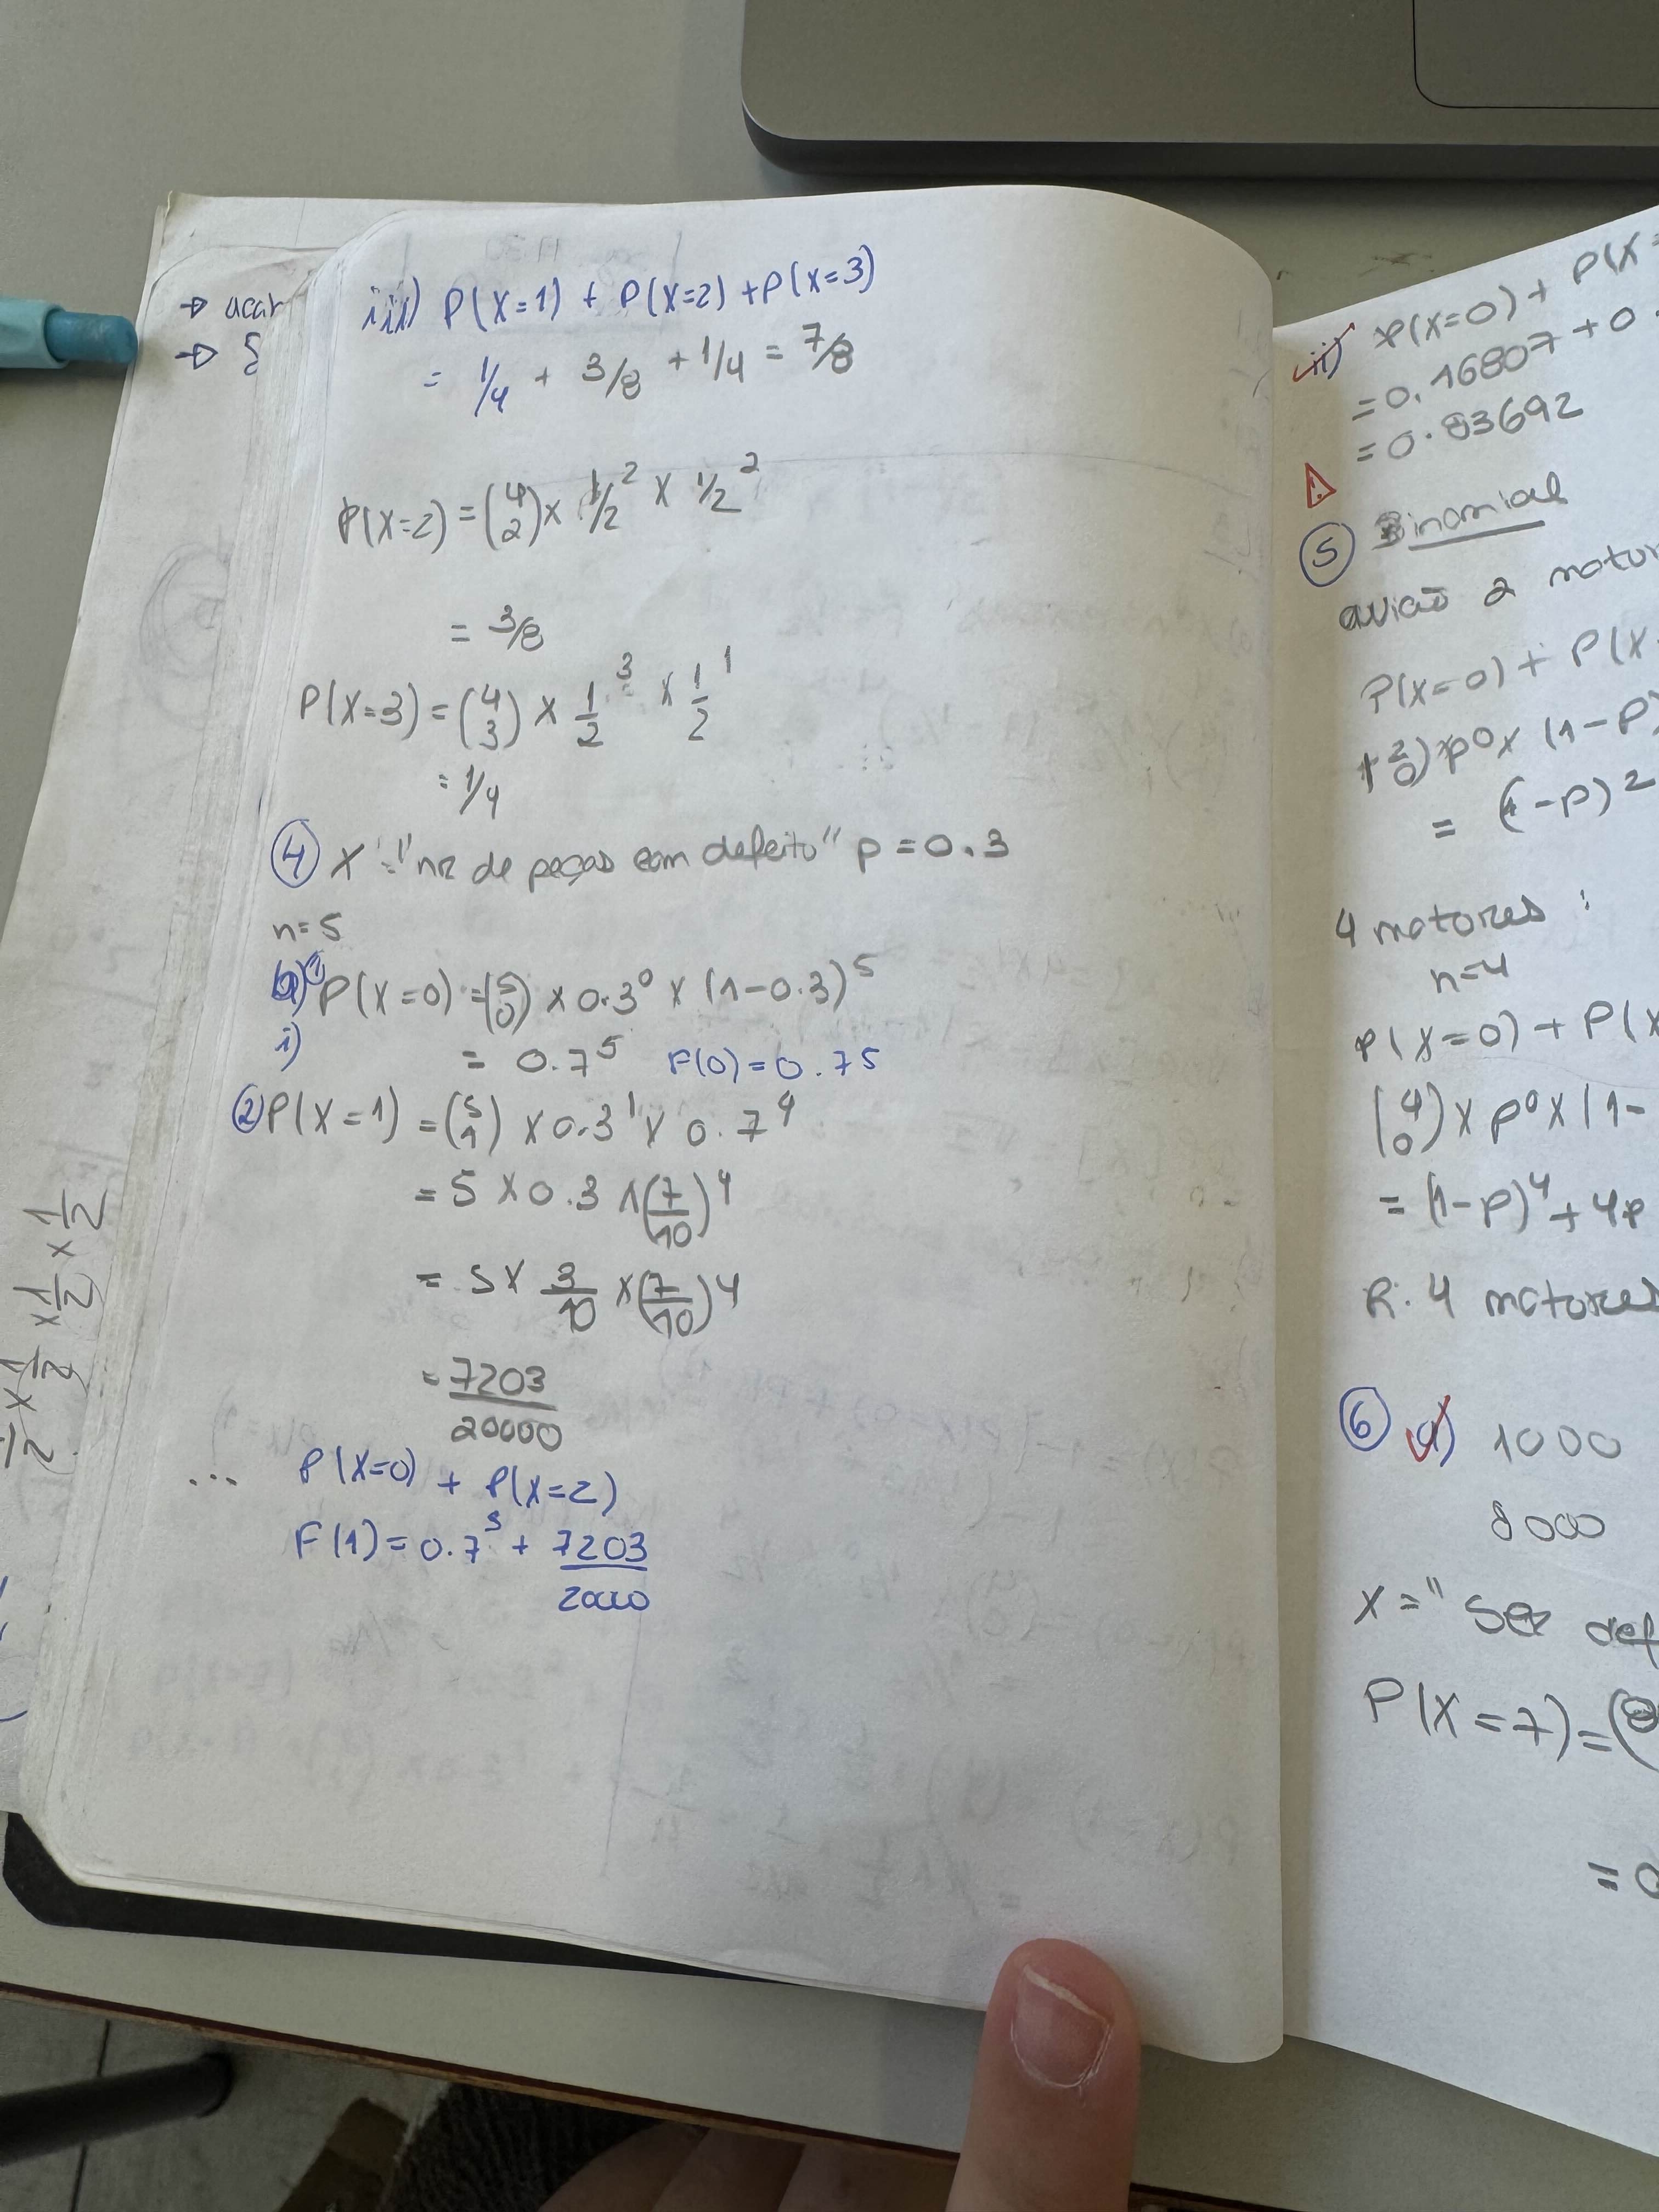 → acar
→ {
iii) P(X=1) + P(X=2) + P(X=3)
= 1/4 + 3/8 + 1/4 = 7/8
P(X=2) = (4 2) x 1/2² x 1/2²
= 3/8
P(X=3) = (4 3) x 1/2³ x 1/2¹
= 1/4
④ X = "nr de peças com defeito" p = 0.3
n=5
① P(X=0) = (5 0) x 0.3⁰ x (1-0.3)⁵
i) = 0.7⁵ F(0) = 0.75
② P(X=1) = (5 1) x 0.3¹ x 0.7⁴
= 5 x 0.3 x (7/10)⁴
= 5 x 3/10 x (7/10)⁴
= 7203/20000
... P(X=0) + P(X=2)
F(1) = 0.7⁵ + 7203/20000
1/2 x 1/2 x 1/2
ii) P(X=0) + P(X=
= 0.16807 + 0.
= 0.83692
⑤ Binomial
avião 2 motor
P(X=0) + P(X
(2 0) p⁰ x (1-P)
= (1-p)²
4 motores :
n=4
P(X=0) + P(X
(4 0) x p⁰ x (1-
= (1-p)⁴ + 4p
R: 4 motores
⑥ a) 1000
8000
X = " Ser def
P(X=7) = (8
= 0